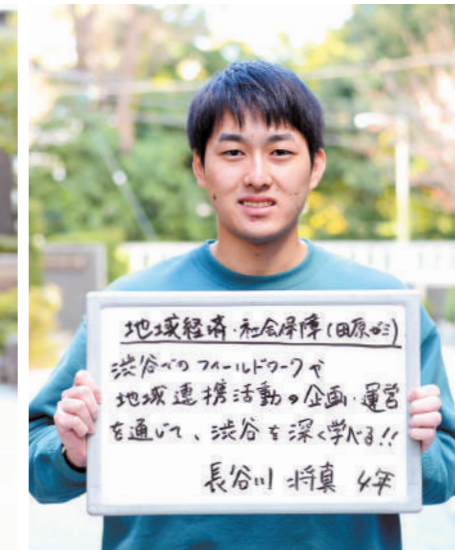 地域経済・社会保障(田原ゼミ)
渋谷でのフィールドワークや
地域連携活動の企画・運営
を通じて、渋谷を深く学べる!!
長谷川 将真 4年